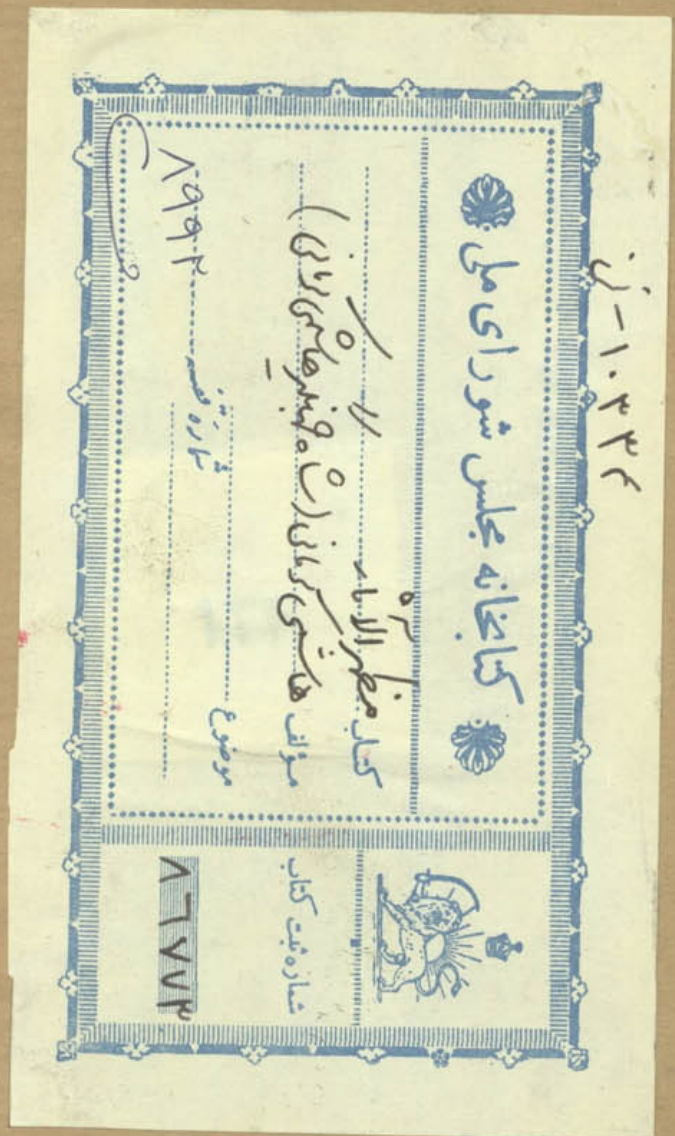 ن - ۱۰۳۳۴
کتابخانه مجلس شورای ملی
کتاب مظهر الآثار
مؤلف هاشمی کرمانی (شاه جهانگیر هاشمی کرمانی)
موضوع
شماره قفسه ۸۹۹۲
شماره ثبت کتاب
۸۶۷۷۳